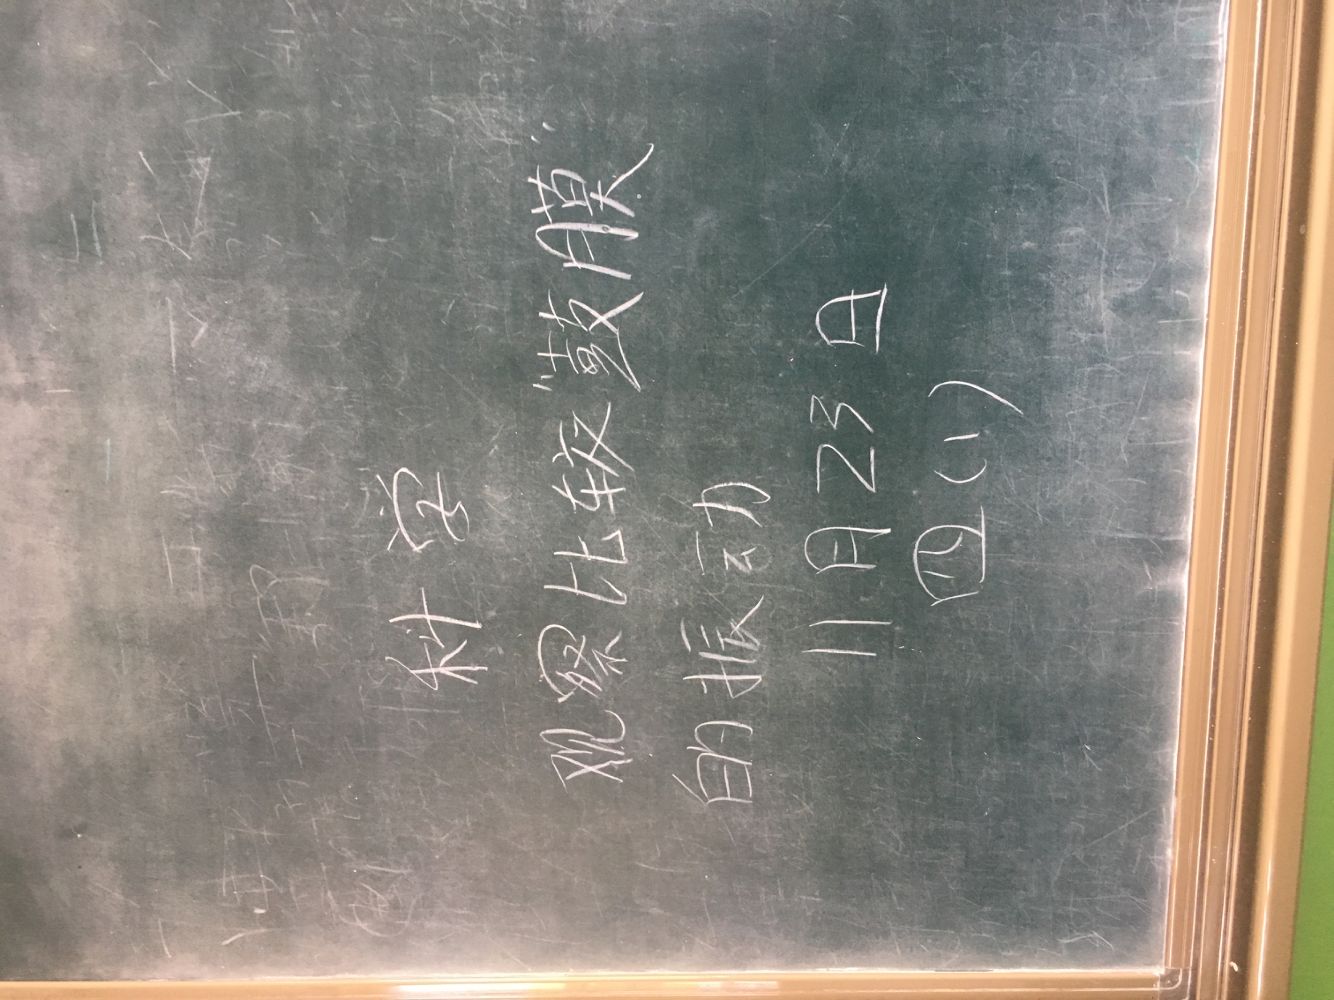 科学
观察比较鼓膜
的振动
11月23日
四(1)